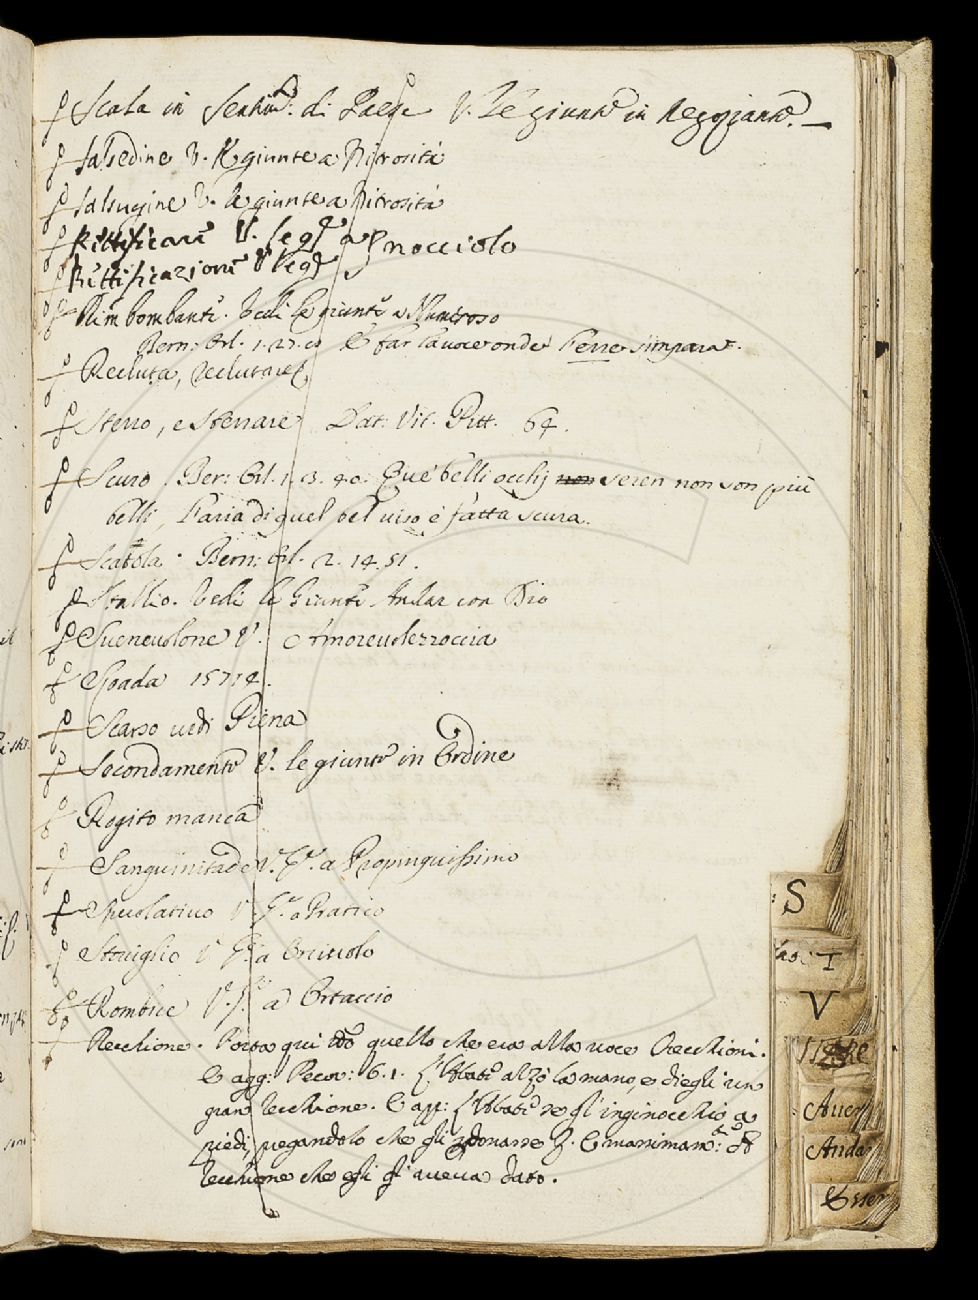 Scala in Sentim.º di Paese V. Le giunte in Reggiam.º
Salsedine V. le giunte a Nitrosità
Salsugine V. le giunte a Nitrosità
Rittificare V. le g.e a Gnocciolo
Rittificazione V le g.e
Rimbombante. Vedi le giunte a Numeroso
Bern: Orl. 1. 27. E far la voce onde Ferre si impara.
Recluta, reclutare
Sterro, e Sterrare Dat: Vit. Pitt. 64.
Scuro Ber: Orl. 1. 3. 40. Que' belli occhj non seren non son più
belli, l'aria di quel bel viso è fatta scura.
Scatola. Bern: Orl. 2. 14. 51.
Stallio. Vedi le Giunte Andar con Dio
Suenevolone V. Amorevolezzoccia
Spada 15714.
Scarso vedi Piena
Secondamente V. le giunte in Ordine
Rogito manca
Sanguinitade V. G.e a Propinquissimo
Speculativo V G.e a Pratico
Stoviglio V G.e a Orciuolo
Rombice V. G.e a Ortaccio
Recchione. Porta qui tto quello che era alla voce Orecchioni.
E agg: Pecor: 6. 1. L'Abate alzò la mano, e diegli un
gran recchione. E app: L'Abate se gl'inginocchiò a
piedi, pregandolo che gli perdonasse
recchione che egli gl'aveva dato.
S
T
V
Aver
Anda
Esser